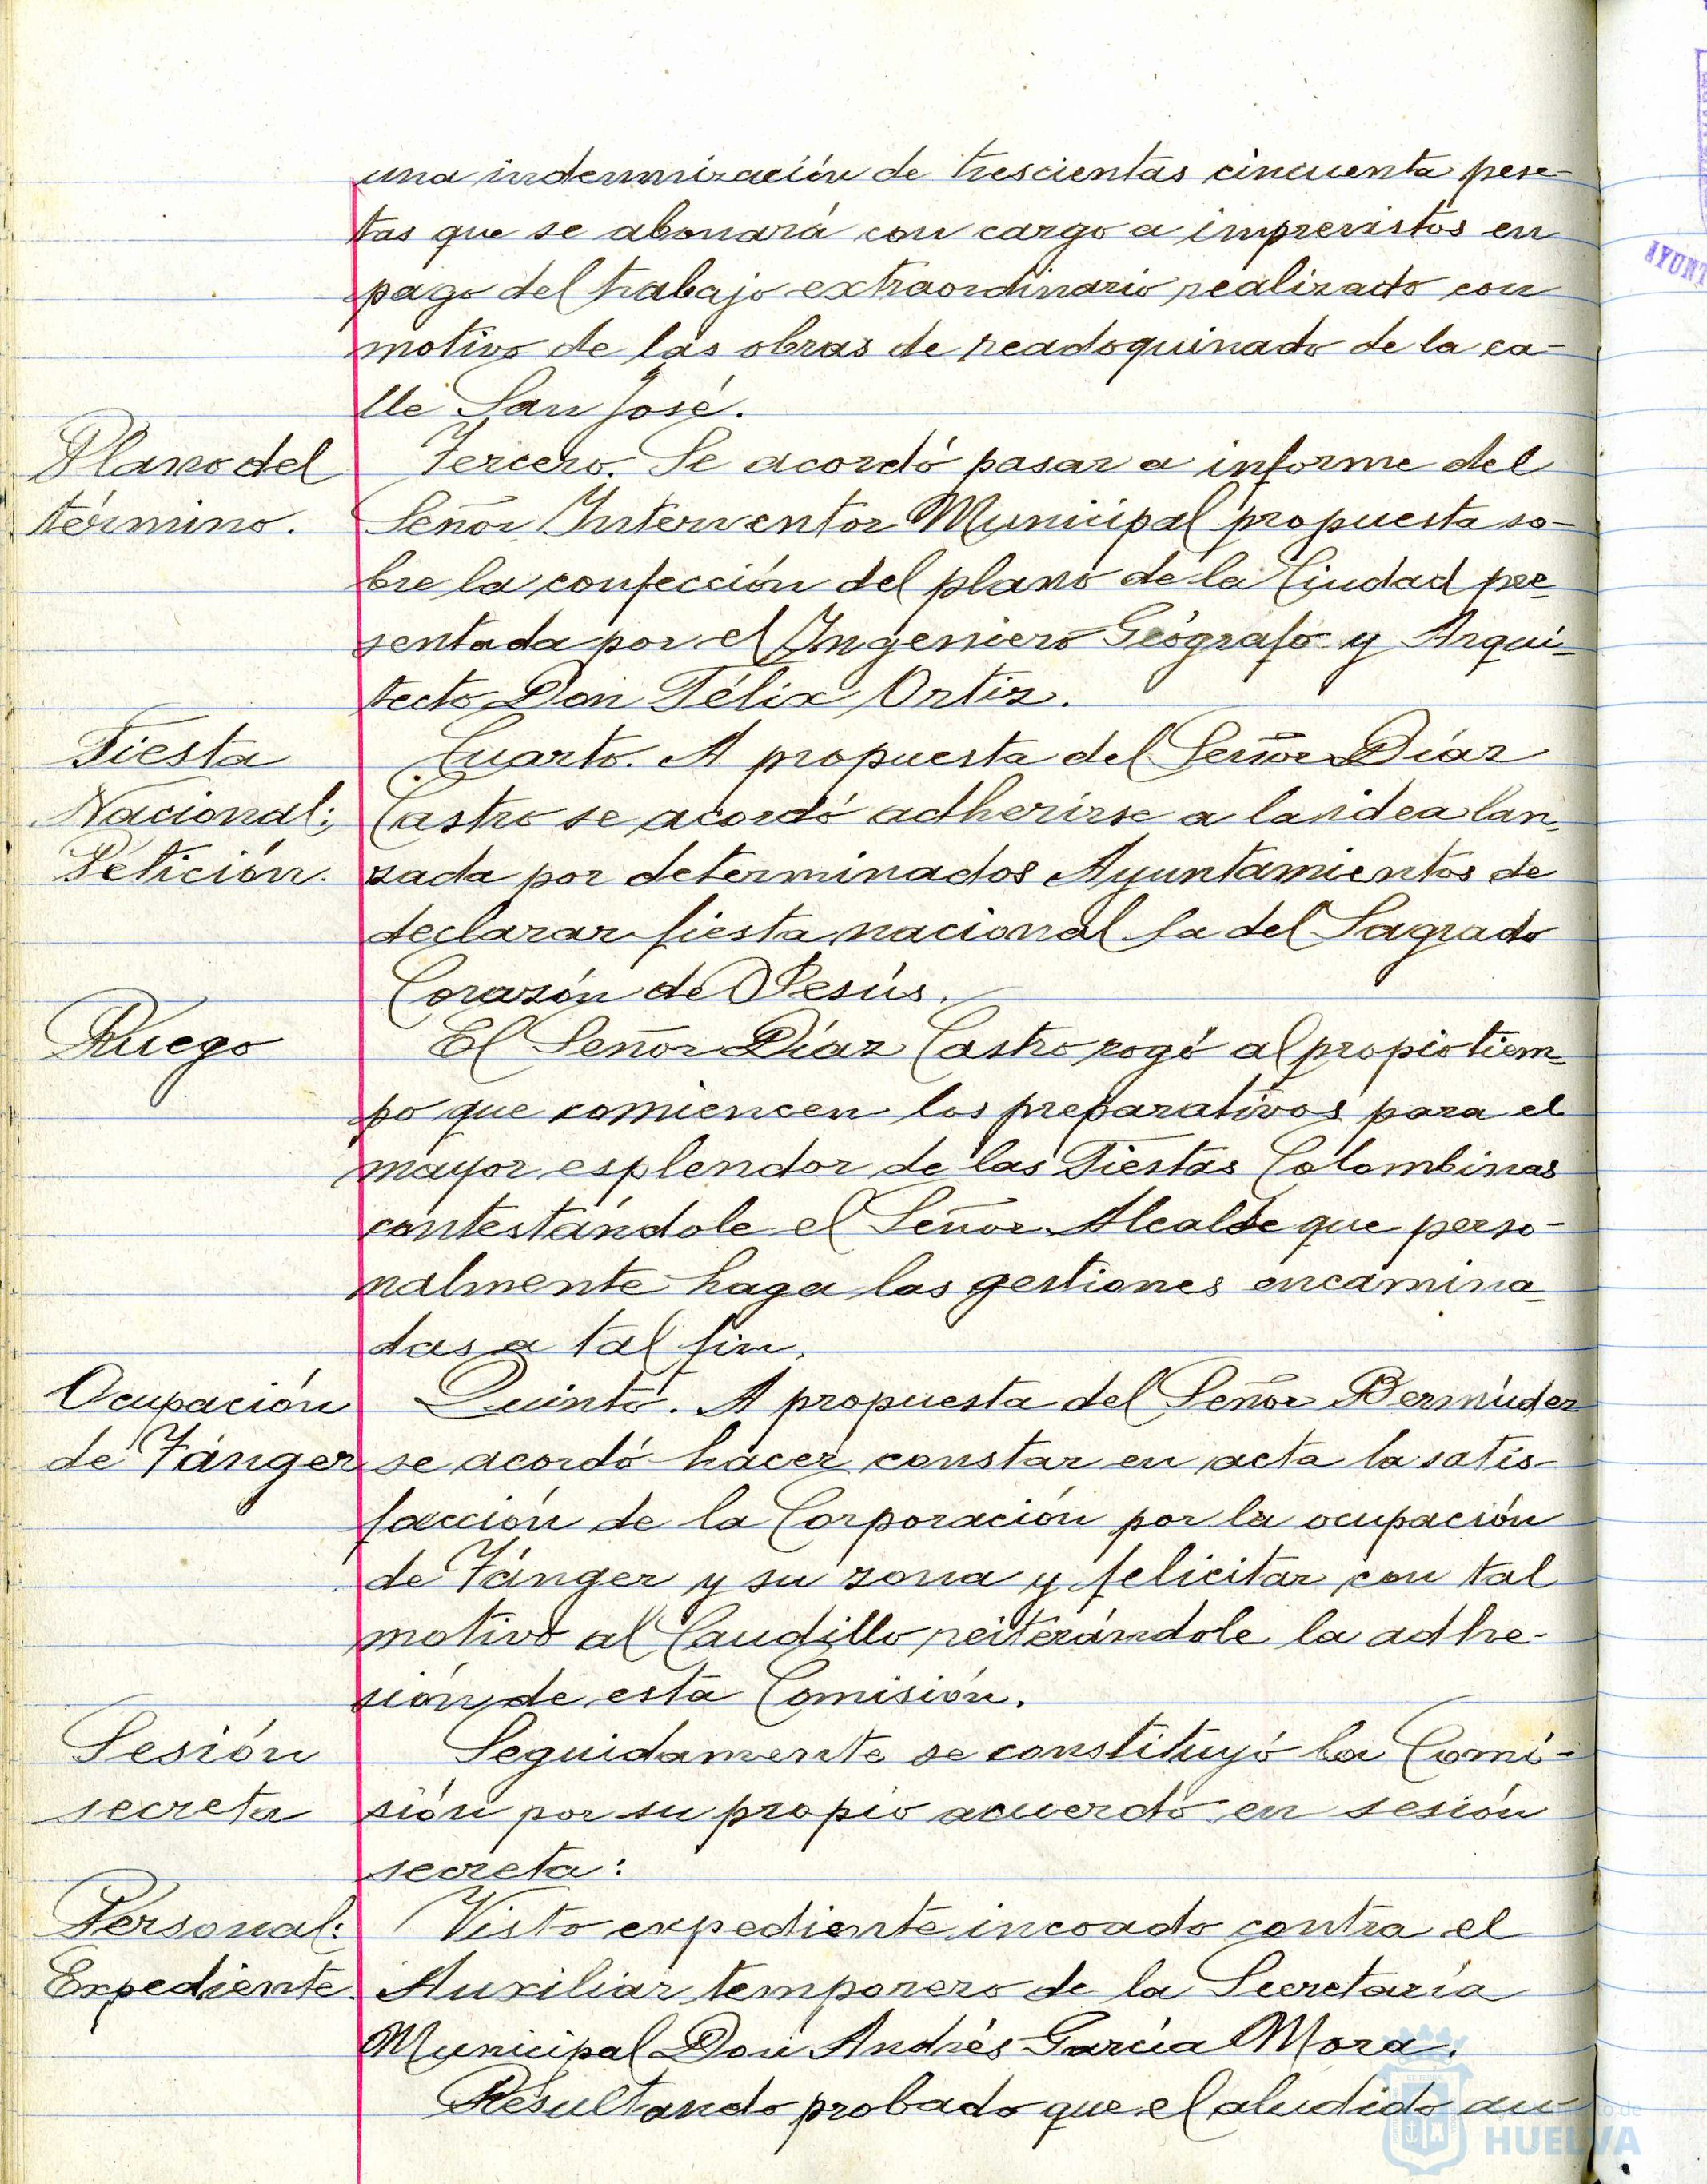 una indemnización de trescientas cincuenta pese-
tas que se abonará con cargo a imprevistos en
pago del trabajo extraordinario realizado con
motivo de las obras de readoquinado de la ca-
lle San José.
Plano del
término.
Tercero. Se acordó pasar a informe del
Señor Interventor Municipal propuesta so-
bre la confección del plano de la Ciudad pre-
sentada por el Ingeniero Geógrafo y Arqui-
tecto Don Félix Ortiz.
Fiesta
Nacional:
Petición.
Cuarto. A propuesta del Señor Díaz
Castro se acordó adherirse a la idea lan-
zada por determinados Ayuntamientos de
declarar fiesta nacional la del Sagrado
Corazón de Jesús.
Ruego
El Señor Díaz Castro rogó al propio tiem-
po que comiencen los preparativos para el
mayor esplendor de las Fiestas Colombinas
contestándole el Señor Alcalde que perso-
nalmente haga las gestiones encamina-
das a tal fin.
Ocupación
de Tánger
Quinto. A propuesta del Señor Bermúdez
se acordó hacer constar en acta la satis-
facción de la Corporación por la ocupación
de Tánger y su zona y felicitar con tal
motivo al Caudillo reiterándole la adhe-
sión de esta Comisión.
Sesión
secreta
Seguidamente se constituyó la Comi-
sión por su propio acuerdo en sesión
secreta:
Personal:
Expediente.
Visto expediente incoado contra el
Auxiliar temporero de la Secretaría
Municipal Don Andrés García Mora.
Resultando probado que el aludido au-
HUELVA
AYUNT